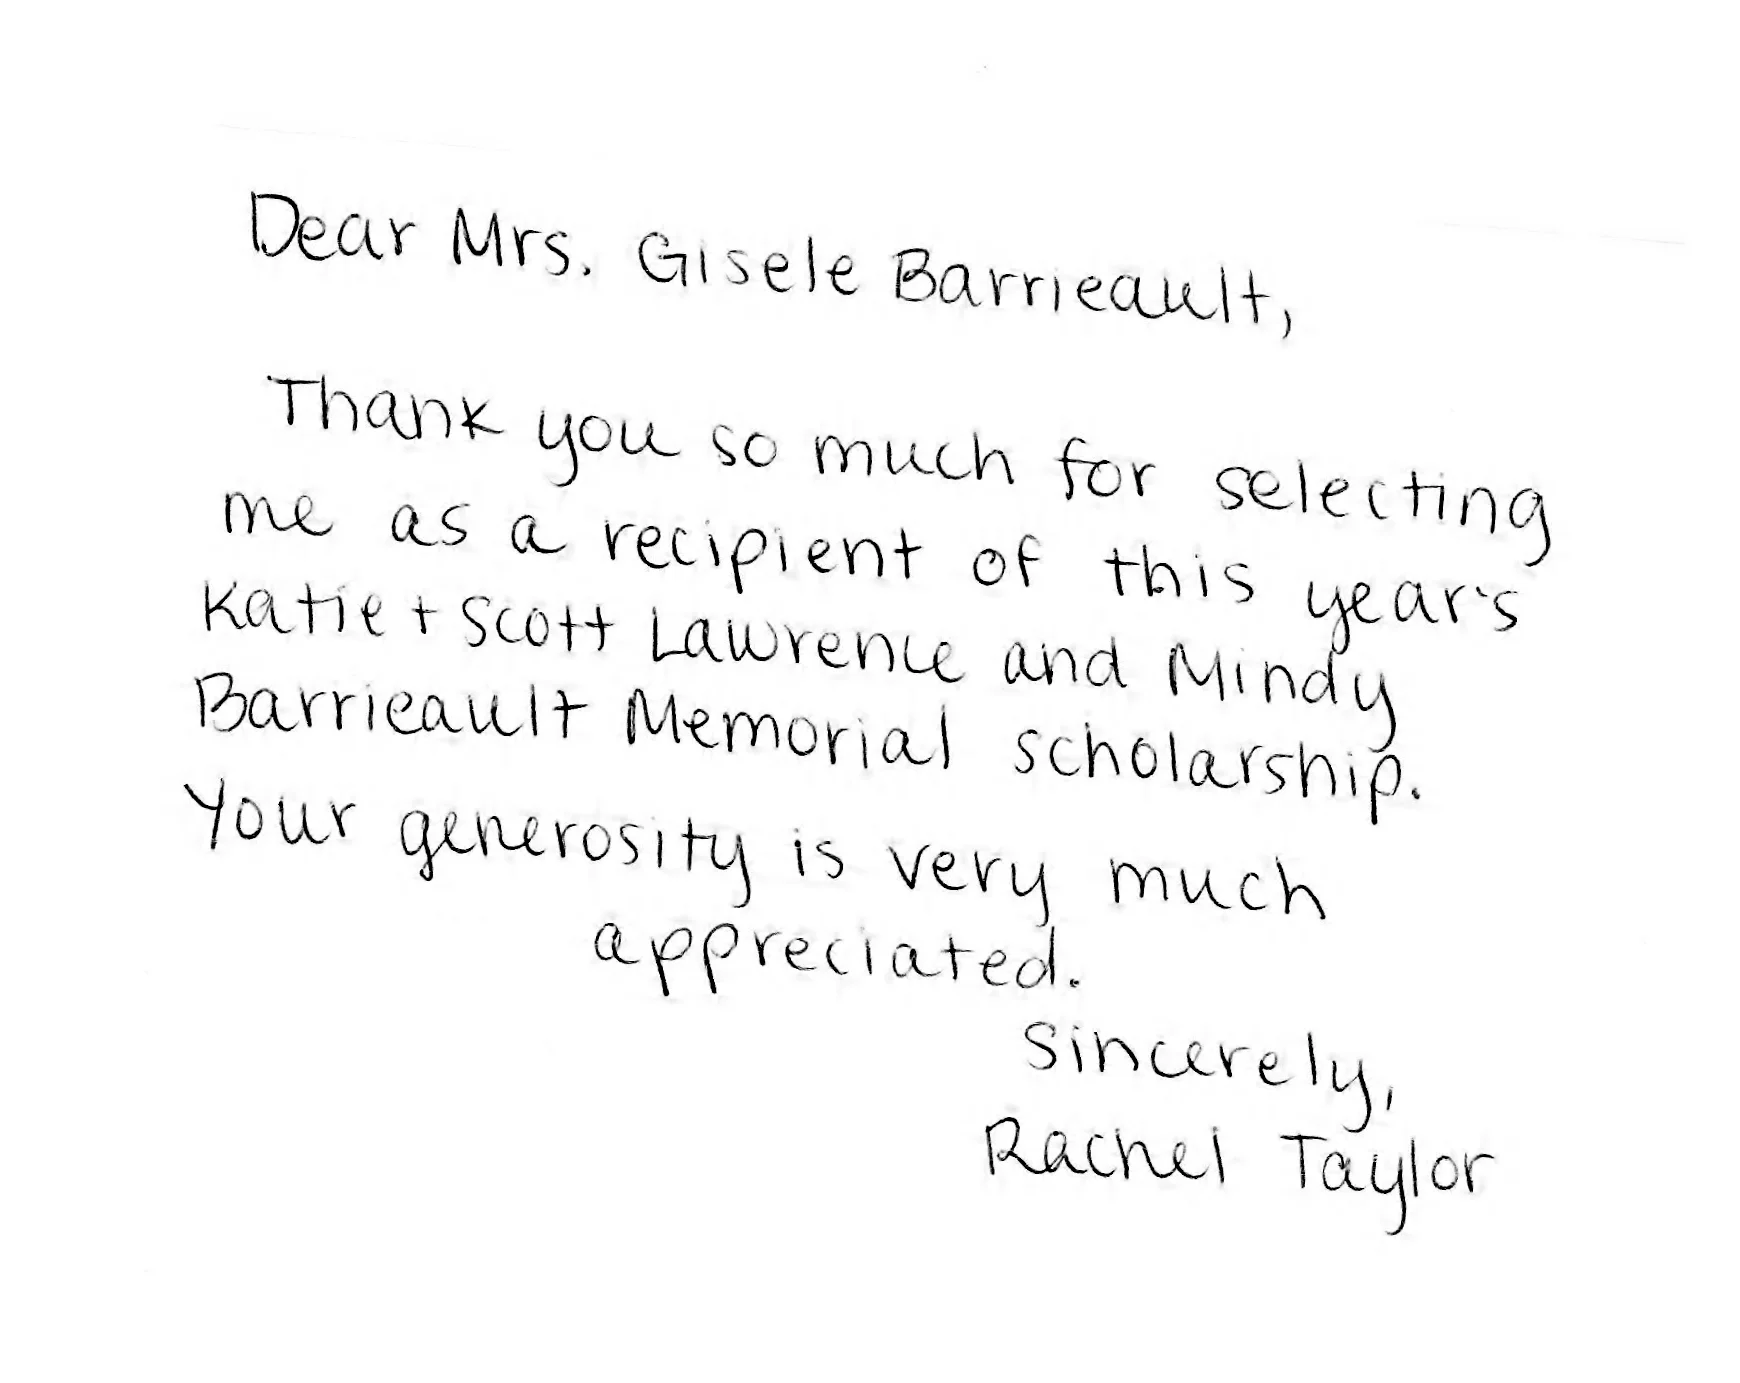 Dear Mrs. Gisele Barrieault,
Thank you so much for selecting
me as a recipient of this year's
Katie + Scott Lawrence and Mindy
Barrieault Memorial scholarship.
Your generosity is very much
appreciated.
Sincerely,
Rachel Taylor